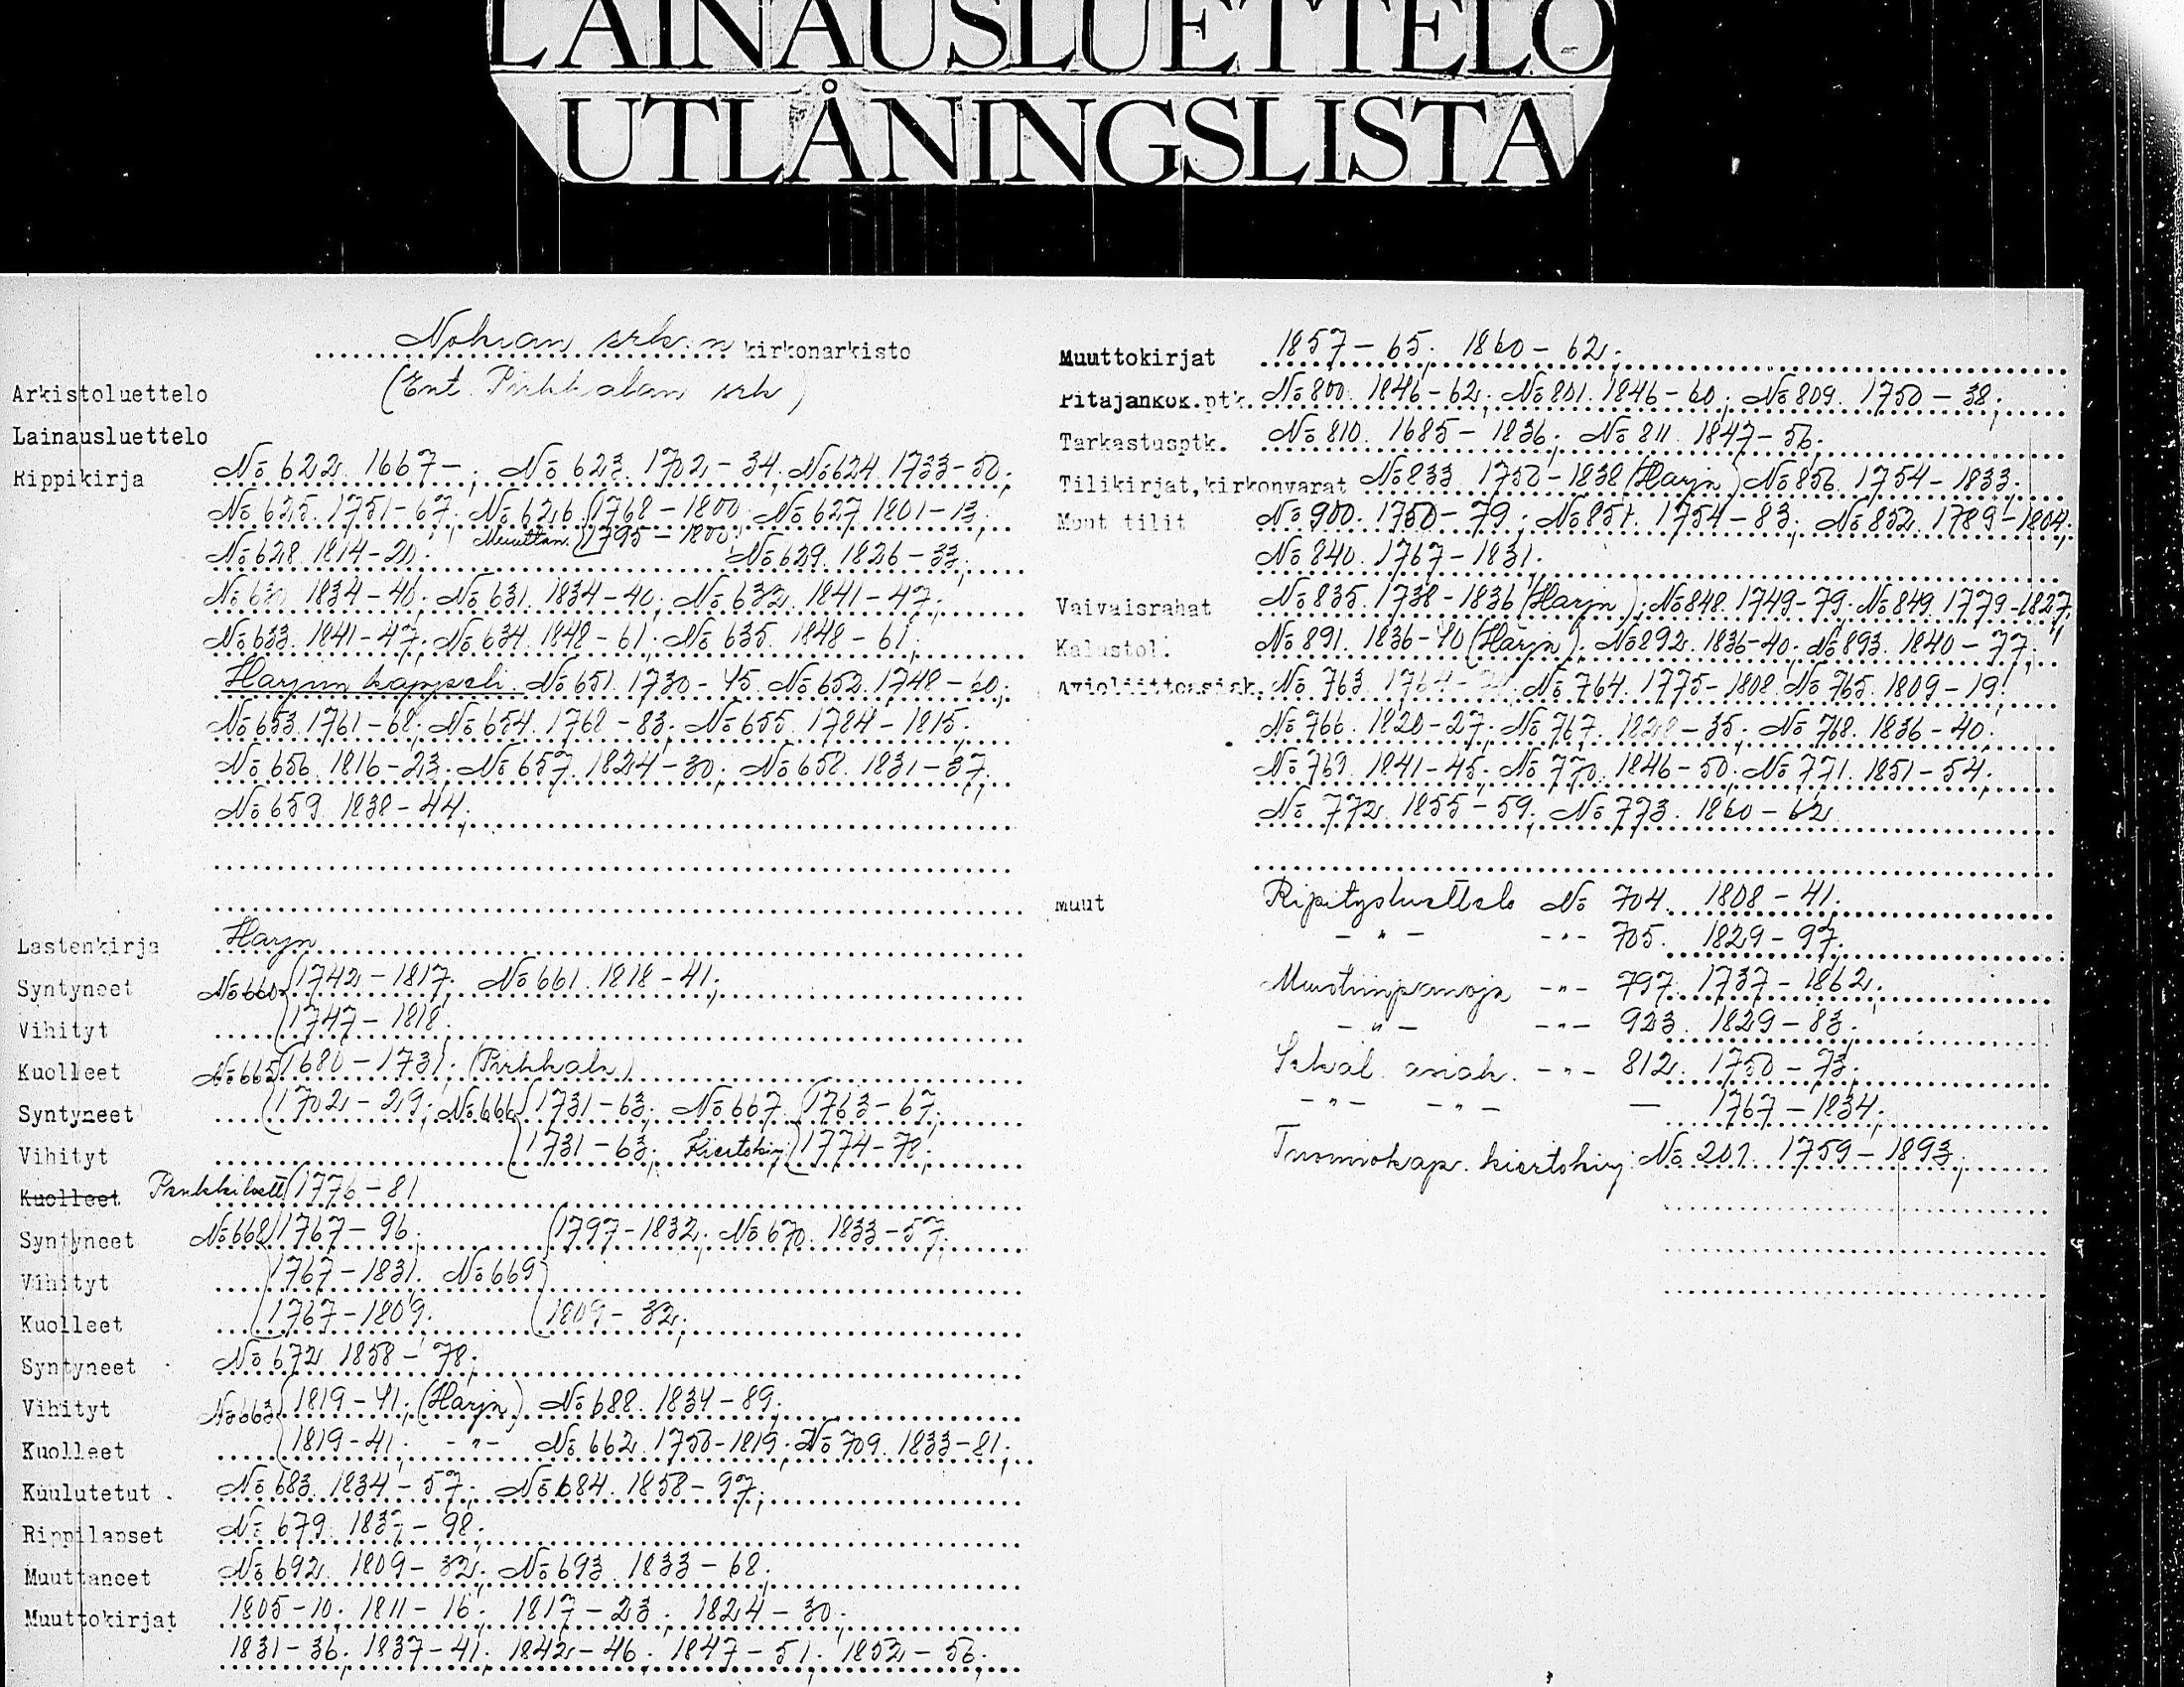 LAINAUSLUETTELO
UTLÅNINGSLISTA
Nokian srk:n kirkonarkisto
(Ent. Pirkkalan srk)
Arkistoluettelo
Lainausluettelo
Rippikirja No 622. 1667-; No 623. 1702-34; No 624. 1733-50;
No 625. 1751-67; No 626. (1768-1800; No 627. 1801-13;
Muuttan. (1795-1800;
No 628. 1814-20; No 629. 1826-33;
No 630. 1834-40; No 631. 1834-40; No 632. 1841-47;
No 633. 1841-47; No 634. 1848-61; No 635. 1848-61;
Harjun kappeli. No 651. 1730-45. No 652. 1748-60;
No 653. 1761-68; No 654. 1768-83; No 655. 1784-1815;
No 656. 1816-23; No 657. 1824-30; No 658. 1831-37;
No 659. 1838-44;
Lastenkirja Harju
Syntyneet No 660 (1742-1817; No 661. 1818-41;
Vihityt (1747-1818;
Kuolleet No 665 (1680-1731; (Pirkkala)
Syntyneet (1702-29; No 666 (1731-63; No 667. (1763-67;
Vihityt (1731-63; Kiertokirj. (1774-78;
Kuolleet Penkkiluett. (1776-81
Syntyneet No 668 (1767-96; (1797-1832; No 670. 1833-57;
Vihityt (1767-1831; No 669
Kuolleet (1767-1809; (1809-32;
Syntyneet No 672. 1858-78;
Vihityt No 663 (1819-41; (Harju) No 688. 1834-89;
Kuolleet (1819-41; -"- No 662. 1750-1819; No 709. 1833-81;
Kuulutetut. No 683. 1834-57; No 684. 1858-97;
Rippilapset No 679. 1837-98;
Muuttaneet No 692. 1809-32; No 693. 1833-68;
Muuttokirjat 1805-10; 1811-16; 1817-23; 1824-30;
1831-36; 1837-41; 1842-46; 1847-51; 1852-56;
Muuttokirjat 1857-65; 1860-62;
Pitäjänkok.ptk. No 800. 1846-62; No 801. 1846-60; No 809. 1750-38;
Tarkastusptk. No 810. 1685-1836; No 811. 1847-56;
Tilikirjat, kirkonvarat No 833. 1750-1838 (Harju) No 856. 1754-1833;
Muut tilit No 900. 1750-79; No 851. 1754-83; No 852. 1789-1804;
No 840. 1767-1831;
Vaivaisrahat No 835. 1738-1836 (Harju); No 848. 1749-79; No 849. 1779-1827;
Kalustol. No 891. 1836-40 (Harju); No 892. 1836-40; No 893. 1840-77;
Avioliittoasiak. No 763. No 764. 1775-1808; No 765. 1809-19;
No 766. 1820-27; No 767. 1828-35; No 768. 1836-40;
No 769. 1841-45; No 770. 1846-50; No 771. 1851-54;
No 772. 1855-59; No 773. 1860-62
muut Ripitysluettelo No 704. 1808-41;
-"- -"- 705. 1829-97;
Muistiinpanoja -"- 797. 1737-1862;
-"- -"- 923. 1829-83;
Sekal. asiak. -"- 812. 1750-73;
-"- -"- — 1767-1834;
Tuomiokap. kiertokirj. No 201. 1759-1893;